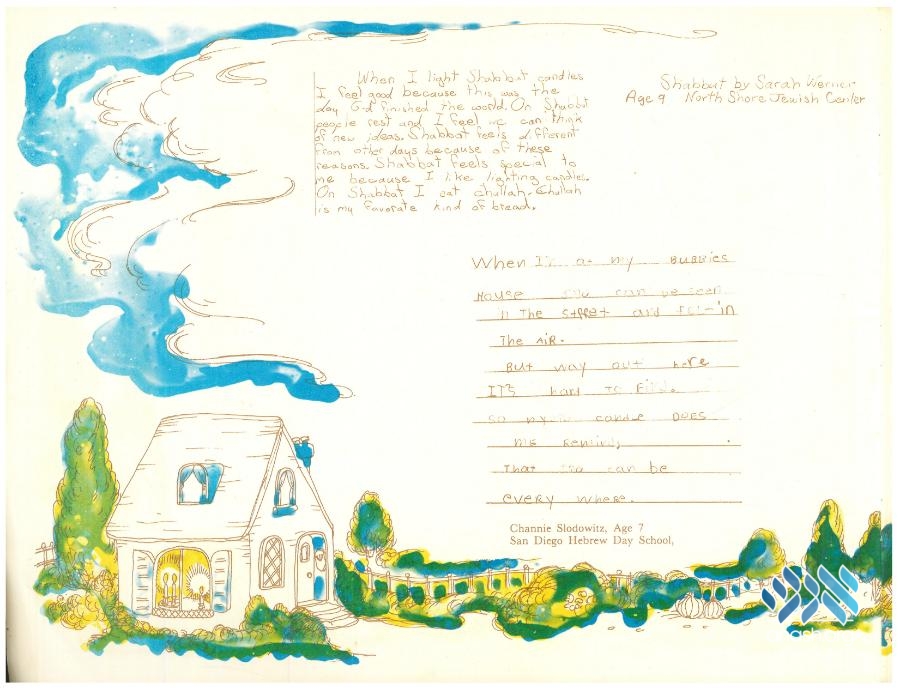 When I light Shabbat candles
I feel good because this was the
day G-d finished the world. On Shabbt
people rest and I feel we can think
of new ideas. Shabbat feels different
from other days because of these
reasons. Shabbat feels special to
me because I like lighting candles.
On Shabbat I eat challah. Challah
is my favorate kind of bread.
Shabbat by Sarah Werner
Age 9 North Shore Jewish Center
When at my BUBBies
House can be seen
The Street and in
The AiR.
But way out here
IT'S hard to
so candle DOES
me
That can be
every where.
Channie Slodowitz, Age 7
San Diego Hebrew Day School,